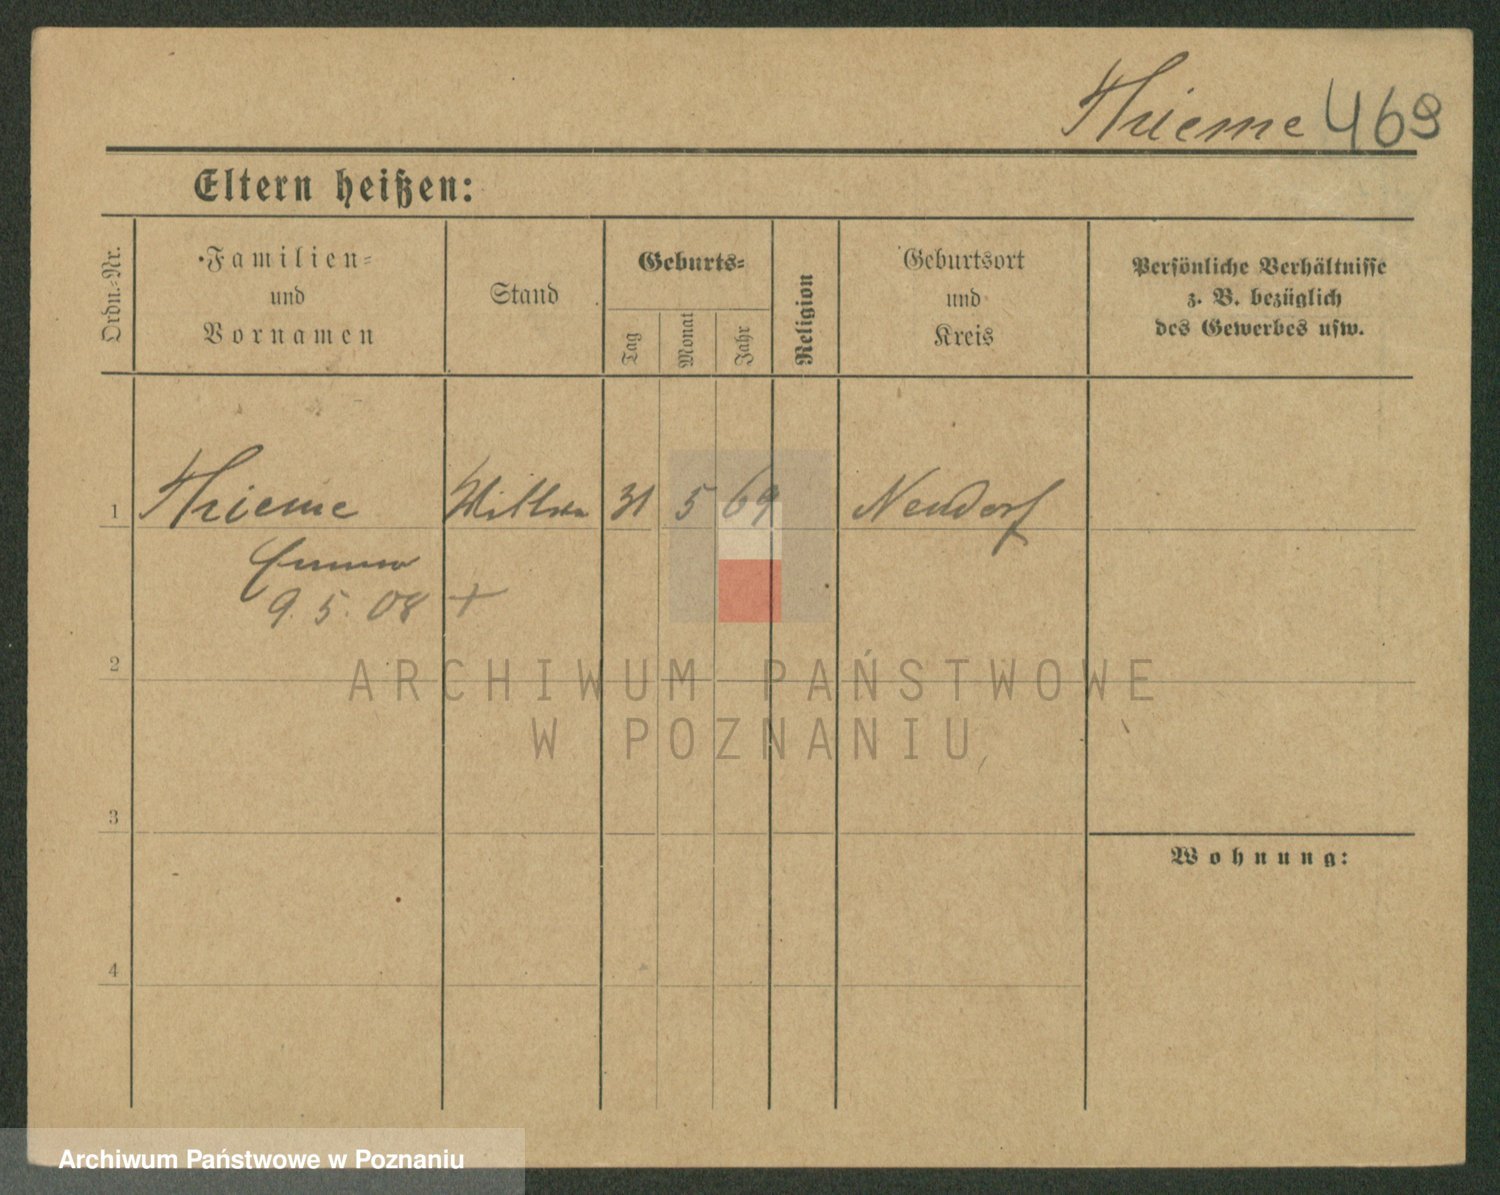 Thieme 469
Eltern heißen:
Ordn.-Nr.
Familien-
und
Vornamen
Stand
Geburts-
Tag
Monat
Jahr
Religion
Geburtsort
und
Kreis
Persönliche Verhältnisse
z. B. bezüglich
des Gewerbes usw.
1 Thieme 31 5 69 Neudorf
Emma
9. 5. 08 +
2
ARCHIWUM PAŃSTWOWE
W POZNANIU
3
Wohnung:
4
Archiwum Państwowe w Poznaniu